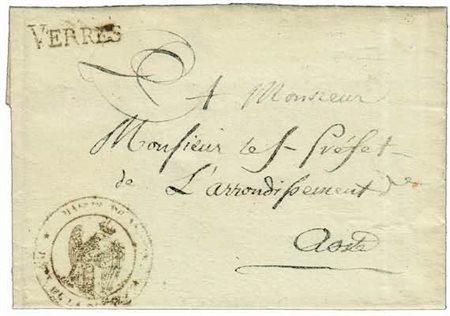 VERRES
A Monsieur
Monsieur le S-Préfet
de L'arrondissement de
Aoste
MAIRIE DE